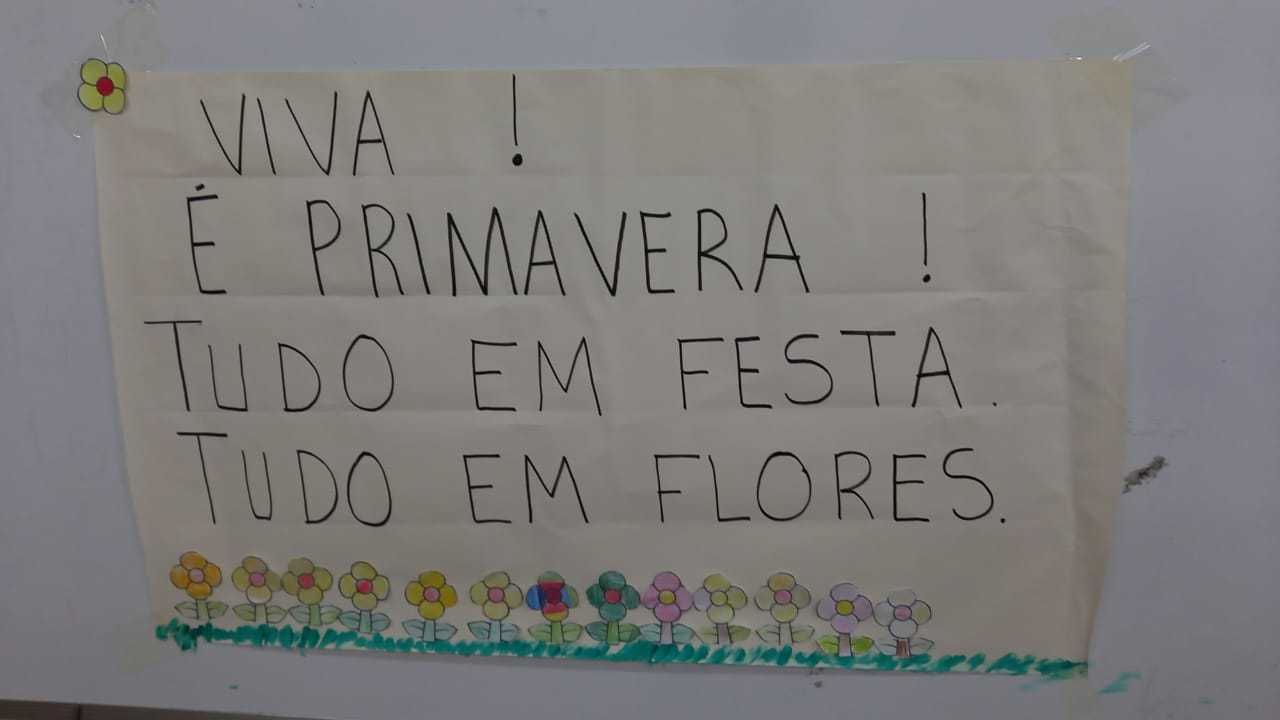 VIVA !
É PRIMAVERA !
TUDO EM FESTA.
TUDO EM FLORES.